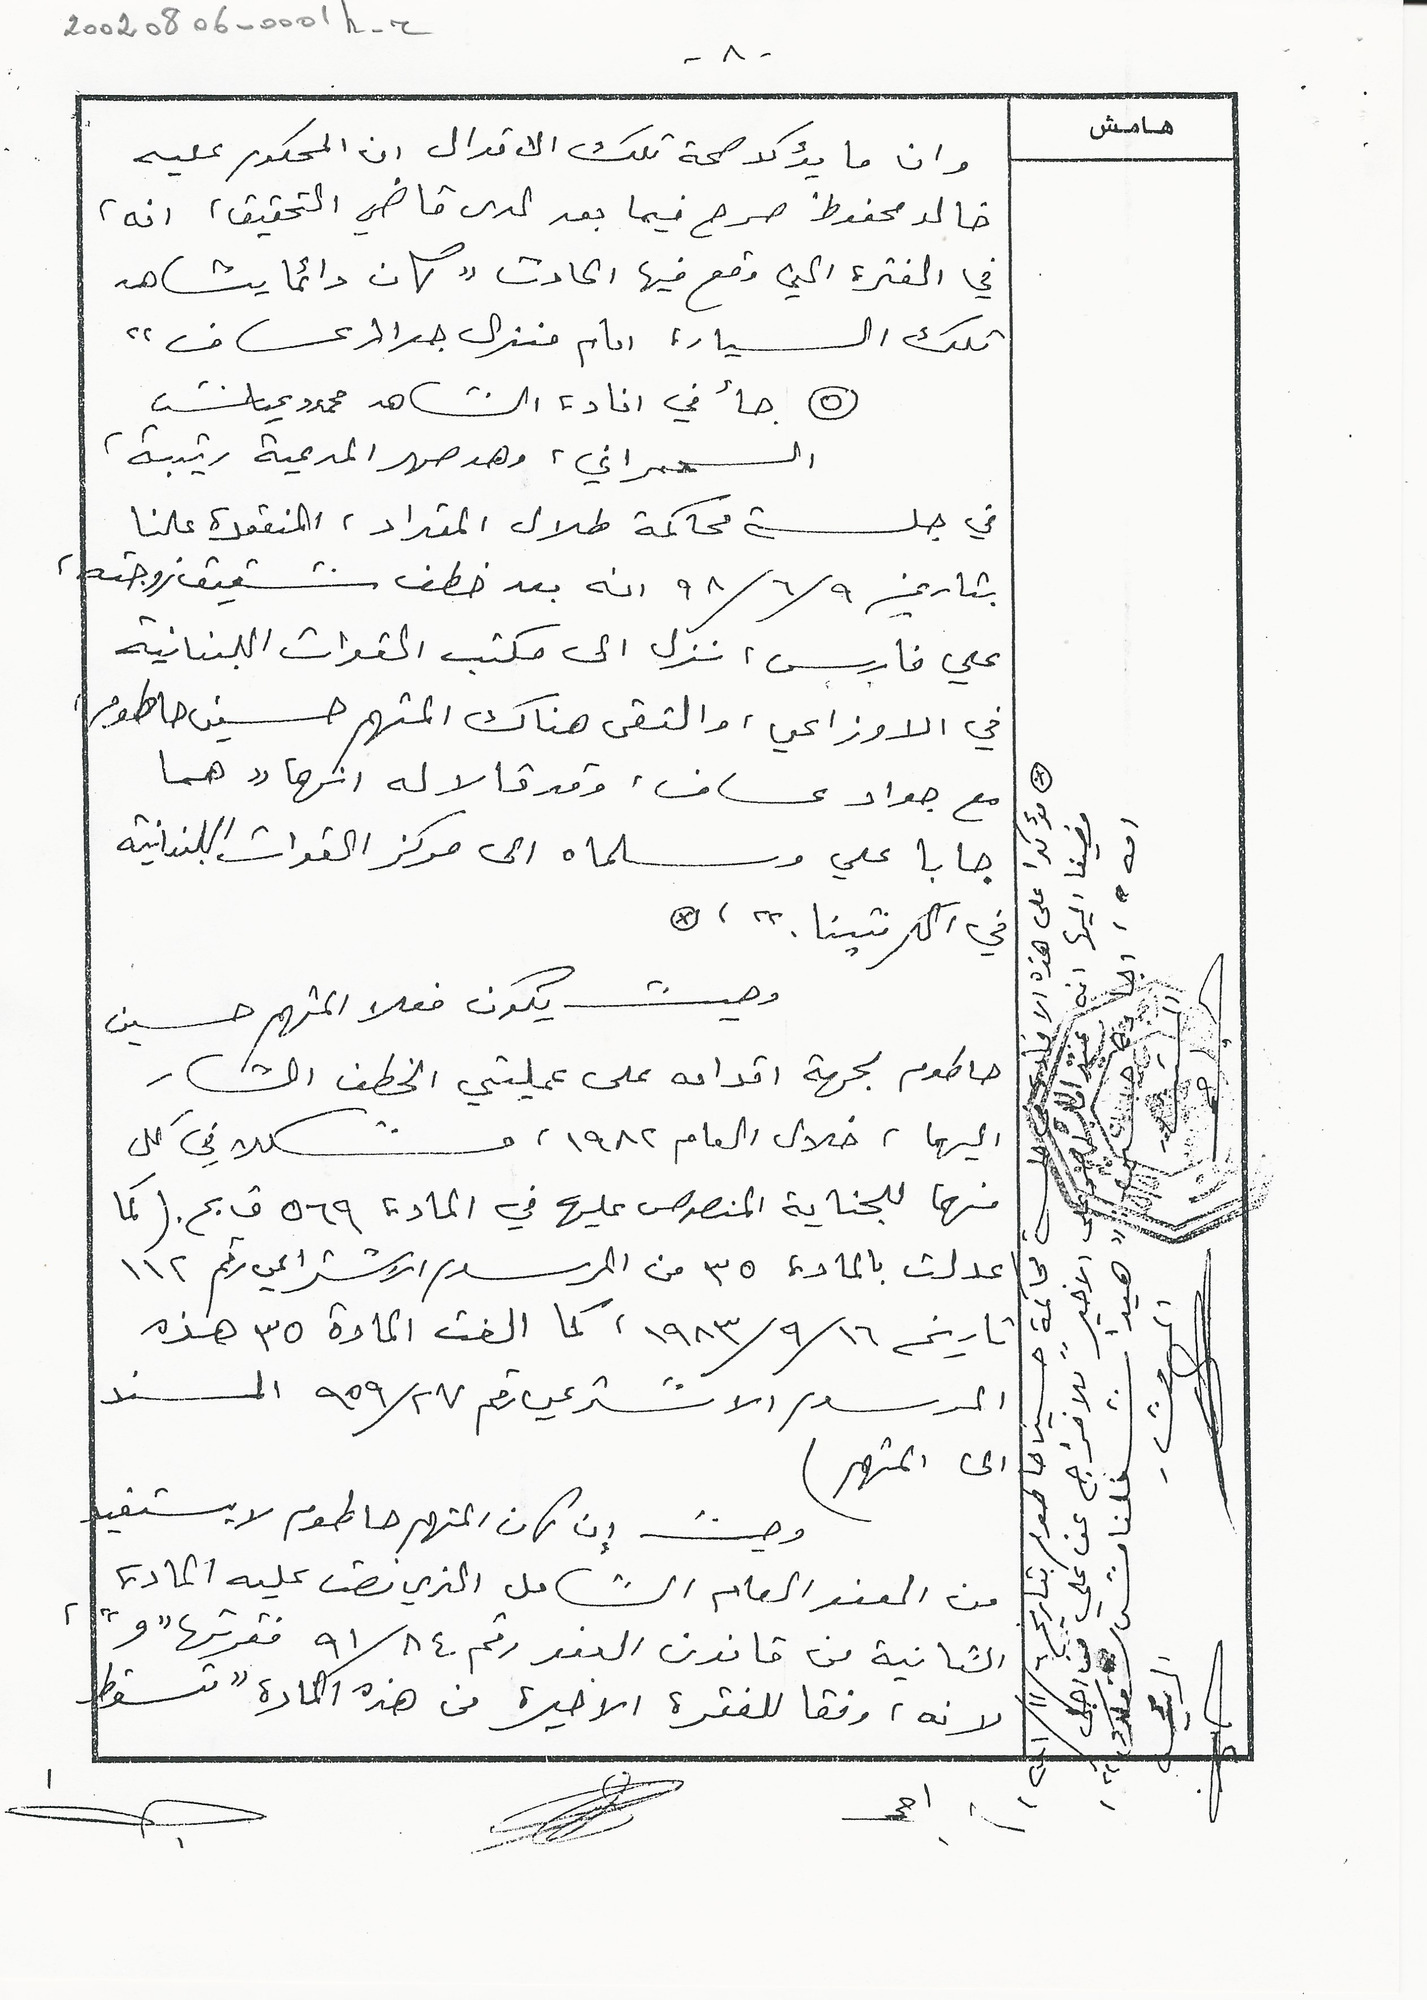 20020806-0001h-2
- ٨ -
هامش
وان ما يؤكد صحة تلك الاقوال ان المحكوم عليه
خالد محفوظ صرح فيما بعد لدى قاضي التحقيق، انه،
في الفترة التي وقع فيها الحادث "كان دائما يشاهد
تلك السيارة امام منزل جواد عساف"
⑤ جاء في افادة الشاهد محمود
السمراني، وهو صهر المدعية رتيبة،
في جلسة محاكمة طلال المقداد، المنعقدة علنا
بتاريخ ٩/٦/٩٨ انه بعد خطف شقيق زوجته،
علي فارس، نزل الى مكتب القوات اللبنانية
في الاوزاعي، والتقى هناك المتهم حسين حاطوم،
مع جواد عساف، وقد قالا له انهما "هما
جابا علي وسلماه الى مركز القوات اللبنانية
في الكرنتينا."، ⊗
وحيث يكون فعلا المتهم حسين
حاطوم لجهة اقدامه على عمليتي الخطف المشار
اليهما، خلال العام ١٩٨٢، مشكلا في كل
منهما للجناية المنصوص عليها في المادة ٥٦٩ ق.ع. (كما
عدلت بالمادة ٣٥ من المرسوم الاشتراعي رقم ١١٢
تاريخ ١٦/٩/١٩٨٣، كما الغت المادة ٣٥ هذه
المرسوم الاشتراعي رقم ٢٧/٩٥٩ المسند
الى المتهم)
وحيث إن كان المتهم حاطوم لا يستفيد
من العفو العام الشامل الذي نصت عليه المادة
الثانية من قانون العفو رقم ٨٤/٩١ فقرتها "و"،
لانه، وفقا للفقرة الاخيرة من هذه المادة "تسقط
⊗ مؤكدا على هذه الافادة في جلسة محاكمة حسين حاطوم بتاريخ
مضيفا اليها انه عند الاخير "للافراج عن علي من اجل
انه"، اجا حسين "هيدا
المستشار
الرئيس